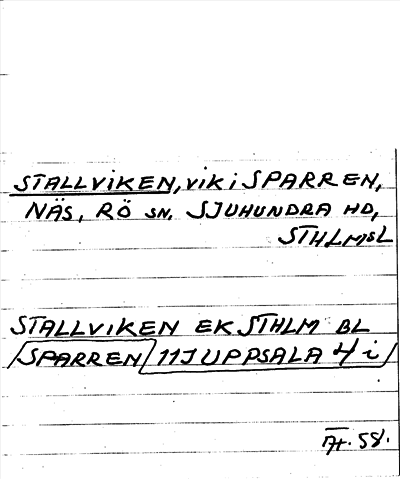 STALLVIKEN, VIK i SPARREN,
NÄS, RÖ SN, SJUHUNDRA HD,
STHLMSL
STALLVIKEN EK STHLM BL
SPARREN 11J UPPSALA 4 i
58.